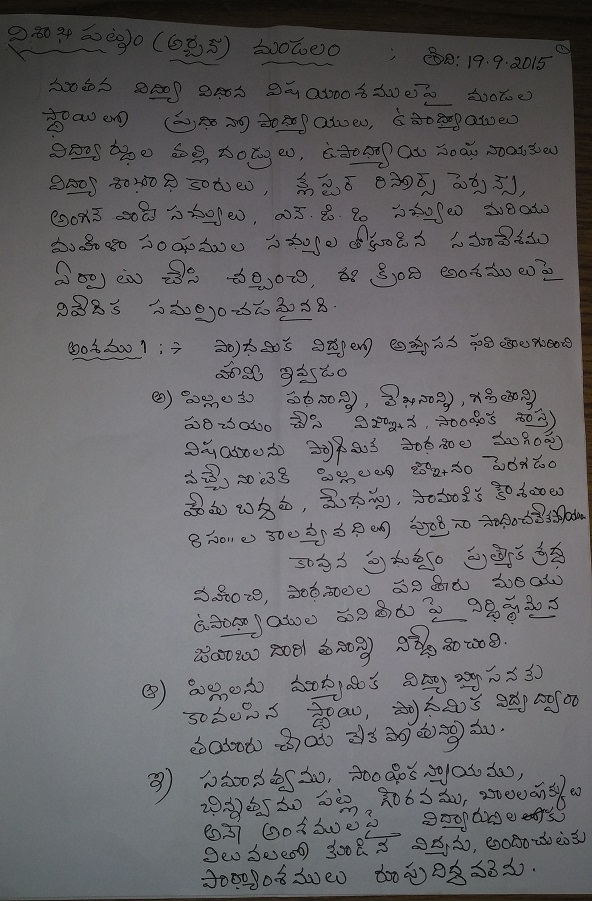 విశాఖపట్నం (అర్బన్) మండలం : తేది: 19.9.2015
1
నూతన విద్యా విధాన విషయాంశములపై మండల
స్థాయిలో ప్రధానోపాధ్యాయులు, ఉపాధ్యాయులు
విద్యార్థుల తల్లి దండ్రులు, ఉపాధ్యాయ సంఘ నాయకులు
విద్యా శాఖాధికారులు, క్లస్టర్ రిసోర్స్ పెర్సన్స్,
అంగన్ వాడి సభ్యులు, ఎన్.జి.ఒ సభ్యులు మరియు
మహిళా సంఘముల సభ్యులతోకూడిన సమావేశము
ఏర్పాటు చేసి చర్చించి, ఈ క్రింది అంశములపై
నివేదిక సమర్పించడమైనది.
అంశము 1 :→ ప్రాధమిక విద్యలో అభ్యసన ఫలితాలగురించి
హామీ ఇవ్వడం
అ) పిల్లలకు పఠనాన్ని, లేఖనాన్ని, గణితాన్ని
పరిచయం చేసి విజ్ఞాన, సాంఘిక శాస్త్ర
విషయాలను ప్రాధమిక పాఠశాల ముగింపు
వచ్చేనాటికి పిల్లలలో జ్ఞానం పెరగడం
హేతుబద్ధత, మేధస్సు, సామాజిక కౌశలాలు
8 సం॥ల కాలవ్యవధిలో పూర్తిగా సాధించలేకపోయాము
కావున ప్రభుత్వం ప్రత్యేక శ్రద్ధ
వహించి, పాఠశాలల పనితీరు మరియు
ఉపాధ్యాయుల పనితీరు పై నిర్ధిష్ఠమైన
జవాబుదారీతనాన్ని నిర్దేశించాలి.
ఆ) పిల్లలను మాధ్యమిక విద్యాభ్యాసనకు
కావలసిన స్థాయి, ప్రాధమిక విద్యద్వారా
తయారు చేయలేకపోతున్నాము.
ఇ) సమానత్వము, సాంఘిక న్యాయము,
భిన్నత్వము పట్ల గౌరవము, బాలలహక్కులు
అనే అంశములపై విద్యార్థులలోకు
విలువలతో కూడిన విద్యను, అందించుటకు
పాఠ్యాంశములు రూపుదిద్దవలెను.